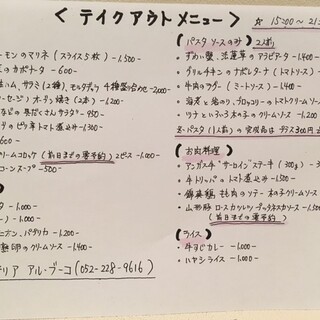 ＜テイクアウトメニュー＞ ☆ 15:00～21:
ーモンのマリネ(スライス5枚) -1.500-
のカポナータ -600-
ハム、サラミ(2種)、モルタデッラ 4種盛り合わせ -2.000-
ーセージ)オーブン焼き(2本) -1.200-
などの具だくさんサラダ -950
のピリ辛トマト煮込み -1.300
-600-
クリームコロッケ(前日までの要予約)2ピース -1.000-
コーンスープ -500-
タ -1.000-
-1.000-
ニオン、パプリカ -1.200-
鶏卵のクリームソース -1.400
テリア アル・ブーコ(052-228-9616)
(パスタ ソースのみ) 2人前
ずわい蟹、法蓮草のアラビアータ -1.400-
グリルチキンのナポレターナ(トマトソース)
牛肉のラグー(ミートソース) -1.400
海老と帆立、ブロッコリーのトマトクリームソース
ツナといろいろ木の子クリームソース -1.400
パスタ(1人前)の完成品はプラス300円
(お肉料理)
アンガス牛"サーロイン"ステーキ(300g) -
牛トリッパのトマト煮込み -1.500
錦爽鶏もも肉のソテー 木の子クリームソース
山形豚ロースカツレツ デュクセルソース -1.500
(前日までの要予約)
(ライス)
牛すじカレー -1.000-
ハヤシライス -1.000-